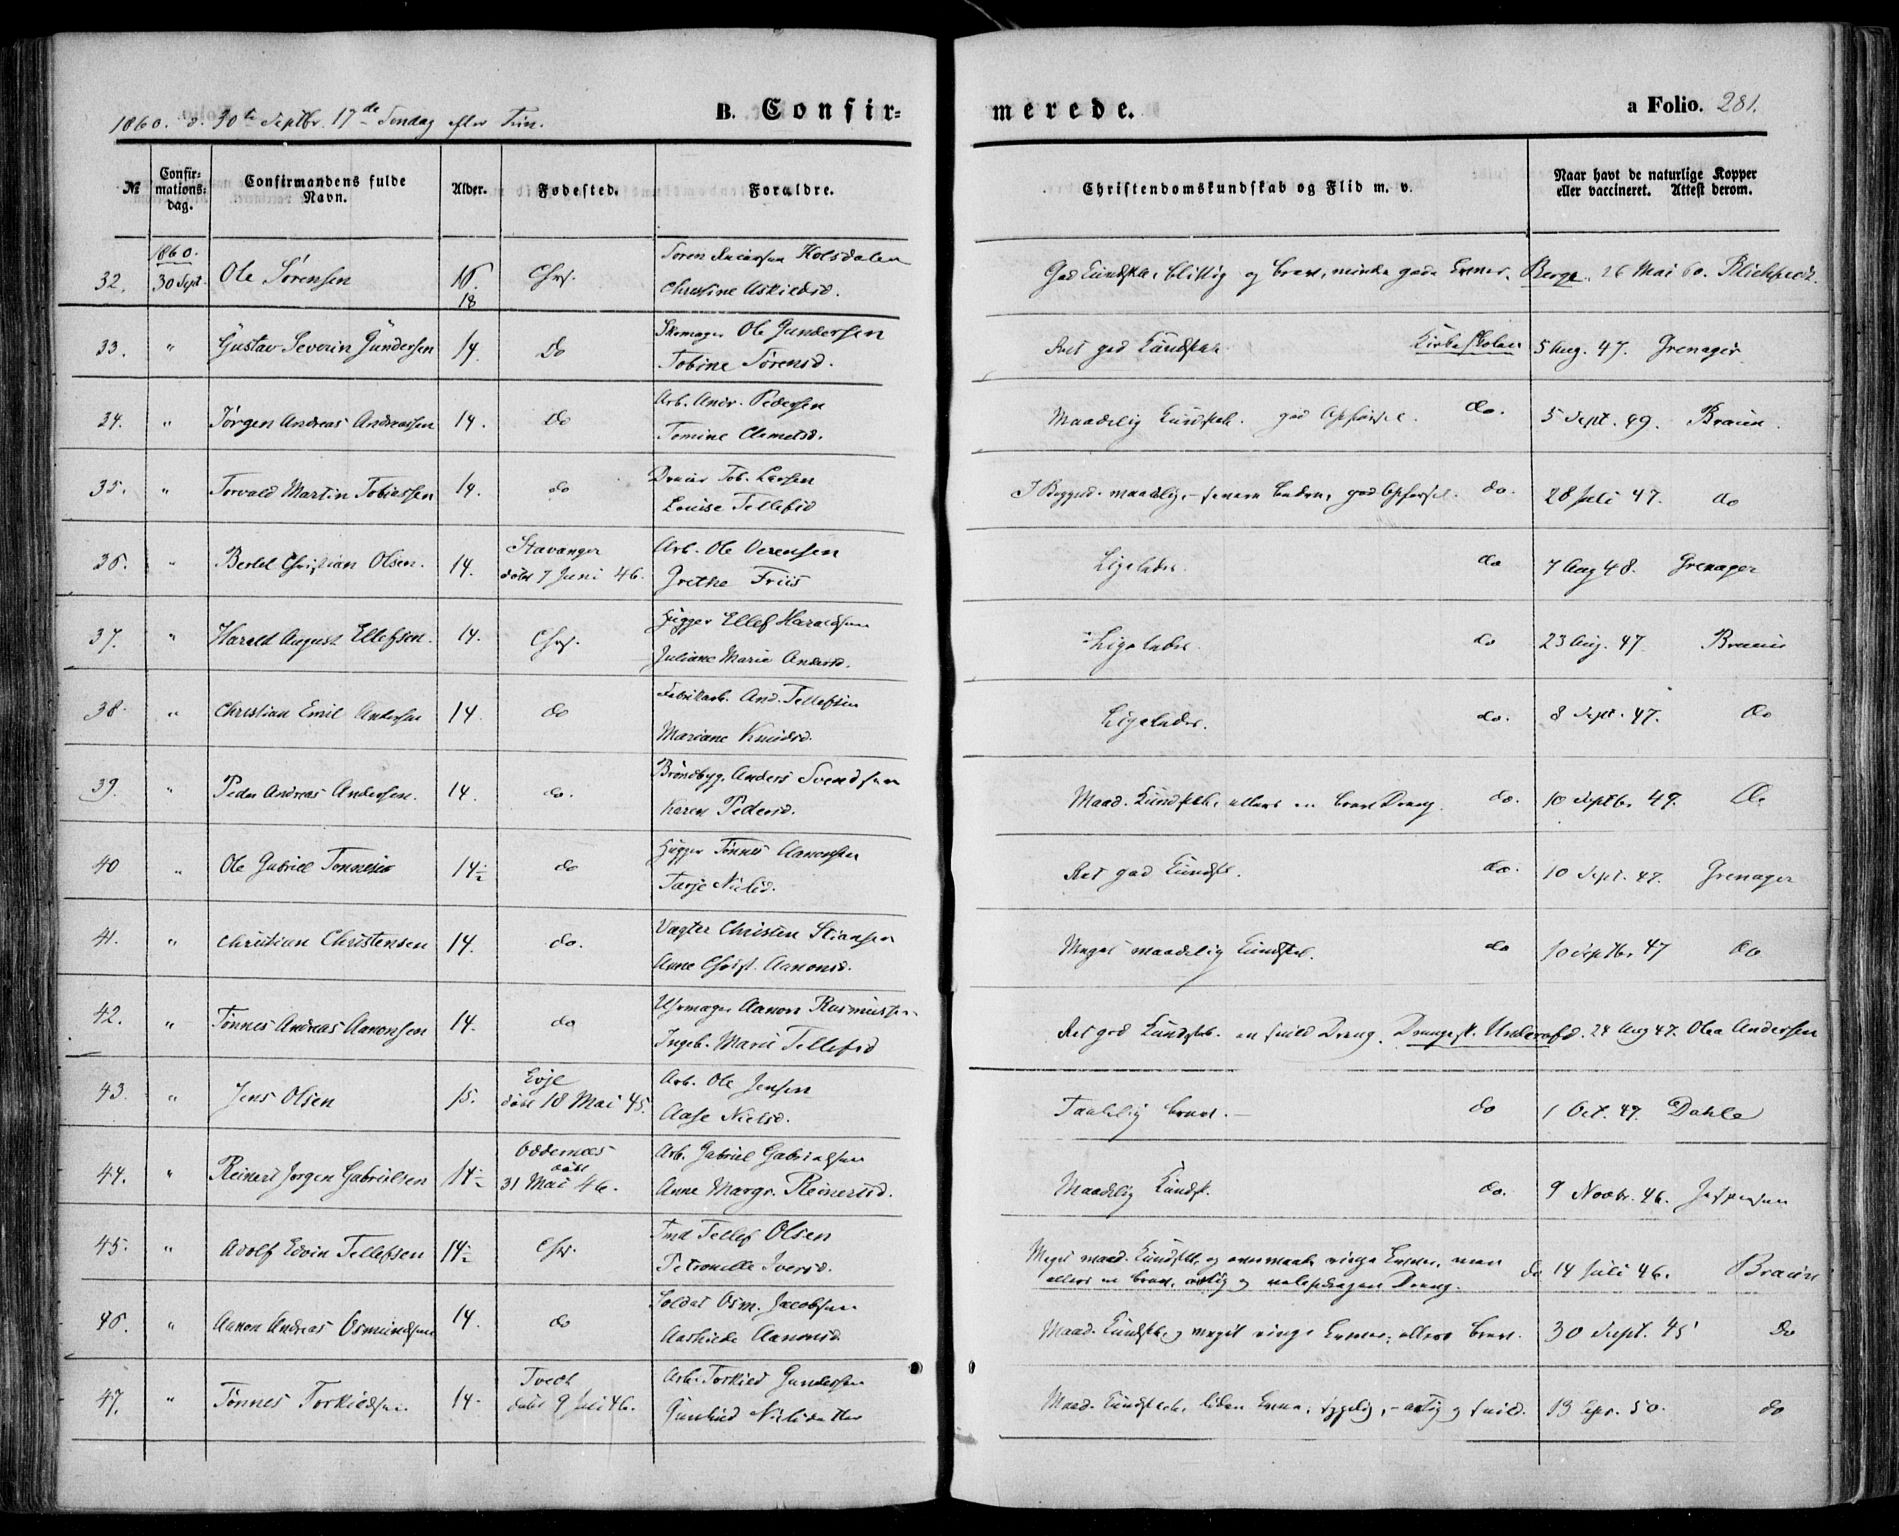 1860. d. 30te Septbr. 17de Søndag efter Trin.
B. Confir=
merede.
a Folio. 281.
№
Confir=
mations=
dag.
Confirmandens fulde
Navn.
Alder.
Fødested.
Forældre.
Christendomskundskab og Flid m. v.
Naar havt de naturlige Kopper
eller vaccineret. Attest derom.
1860.
32. 30 Sept. Ole Sørensen 16. 18 Chrs. Søren Holsdalen
Christine Askildsd.
God Kundsk. flittig og brav, mindre gode Evner. Berge. 26 Mai 60.
33. " Gustav Severin Gundersen 14. Do Skomager Ole Gundersen
Tobine Sørensd.
Ret god Kundskab. Kirkeskolen 5 Aug. 47. Grenager.
34. " Jørgen Andreas Andreassen 14. Do Arb. Andr. Pedersen
Tomine Clemetsd.
Maadelig Kundskab. god Opførsel. do. 5 Sept. 49. Braun.
35. " Torvald Martin Tobiassen 14. do Tob. Larsen
Louise Tellefsd
maadelig, - senere bedre, god Opførsel. do. 28 Juli 47. do
36. " Bertel Christian Olsen. 14. Stavanger
døbt 7 Juni 46. Arb. Ole Verensen
Grethe Friis
Ligeledes. do 7 Aug 48. Grenager
37. " Harald August Ellefsen. 14. Chrs. Hugger Ellef Haraldsen
Juliane Marie Andersd.
Ligeledes. do 23 Aug. 47. Braun
38. " Christian Emil Andersen 14. do Fabrikarb. And. Tellefsen
Mariane Knudsd.
Ligeledes. do. 8 Sept. 47. Do
39. " Peder Andreas Andersen. 14. do. Brøndbyg. Anders Svendsen
Karen Pedersd.
Maad. Kundskab, ellers en brav Dreng. do. 10 Septbr 47. Do
40 " Ole Gabriel Tønnesen 14½ do Hugger Tønnes Aanonsen
Tarje Nielsd.
Ret god Kundsk. do. 10 Sept. 47. Grenager
41. " Christian Christensen 14. do. Vægter Christen Stiansen
Anne Christ. Aanonsd.
Meget maadelig Kundskab. do 10 Septbr. 47 Do
42. " Tønnes Andreas Aanonsen 14. do Uhrmager Aanon Rasmussen
Ingeb. Marie Tellefsd
Ret god Kundskab. en snild Dreng. Drengesk. Underafd. 24 Aug 47. Olea Andersen
43. " Jens Olsen 15. Evje
døbt 18 Mai 45. Arb. Ole Jensen
Aase Nielsd.
Taalelig brav. - do 1 Oct. 47. Dahle
44. " Reinert Jørgen Gabrielsen 14½ Oddernæs
døbt
31 Mai 46. Arb. Gabriel Gabrielsen
Anne Margr. Reinertsd.
Maadelig Kundsk. do. 9 Novbr. 46. Jespersen
45. " Adolf Edvin Tellefsen 14½ Chrs. Tellef Olsen
Petronelle Iversd.
Meget maad. Kundskab og overmaade ringe Evner, men
ellers en brav, ærlig og Dreng. do 14 Juli 46. Braun
46. " Aanon Andreas Osmundsen 14. do Soldat Osm. Jacobsen
Aanonsd
Maad. Kundskab og meget ringe Evner, ellers brav. 30 Sept. 45 Do
47. " Tønnes Torkildsen 14. Tvedt
døbt 9 Juli 46. Arb. Torkild Gundersen
Gunhild Nielsdatter
Maad. Kundskab, liden Evne, sygelig, - artig og snild. 13 Apr. 50. do